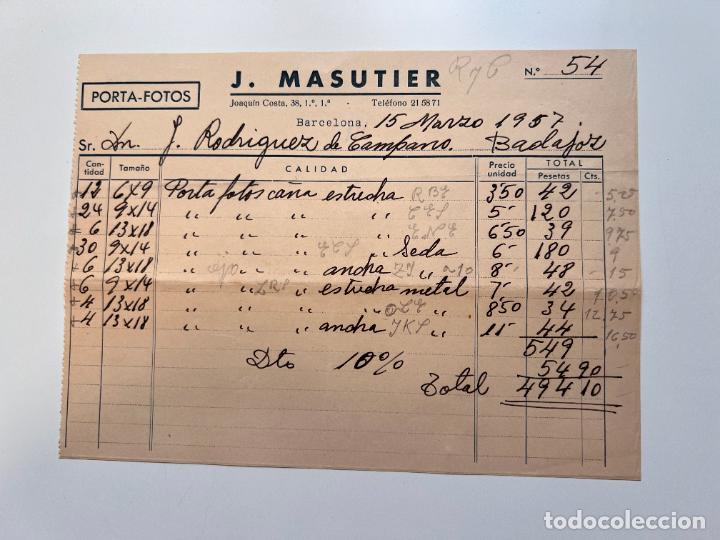 J. MASUTIER
R y C
N.º 54
PORTA-FOTOS
Joaquín Costa, 38, 1.º, 1.ª - Teléfono 21 58 71
Barcelona, 15 Marzo 1957.
Sr. Dn. J. Rodriguez de Campano. Badajoz
Cantidad Tamaño CALIDAD Precio unidad TOTAL Pesetas Cts.
12 6x9 Porta fotos caña estrecha 3'50 42 5,25
24 9x14 " " " " 5- 120 7,50
6 13x18 " " " " 6'50 39 9,75
30 9x14 " " " Seda 6- 180 9
6 13x18 " " " ancha " 8- 48 15
6 9x14 " " " estrecha metal 7- 42 10,50
4 13x18 " " " " " 8'50 34 12,75
4 13x18 " " " ancha JKL " 11- 44 16,50
549
Dto 10% 54 90
Total 494 10
todocoleccion.net